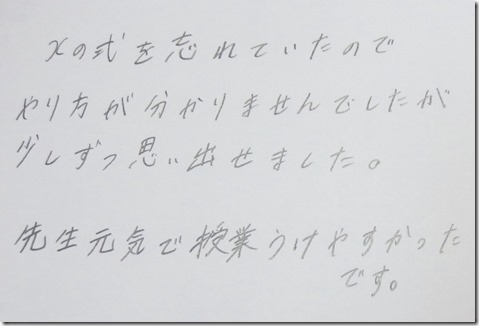 xの式を忘れていたので
やり方が分かりませんでしたが
少しずつ思い出せました。
先生元気で授業うけやすかった
です。